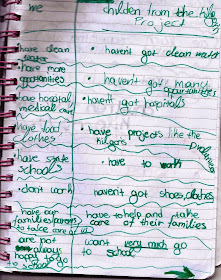 We children from the hilgars
Project
have clean water • haven't got clean water
have more opportunities • haven't got many opportunities
have hospitals medical care • haven't got hospitals
have food clothes • have projects like the hilgars
have state schools • have to work
• dont work haven't got shoes, clothes
have our families/carers to take care of us have to help and take care of their families
are not always happy to go to school want very much go to school